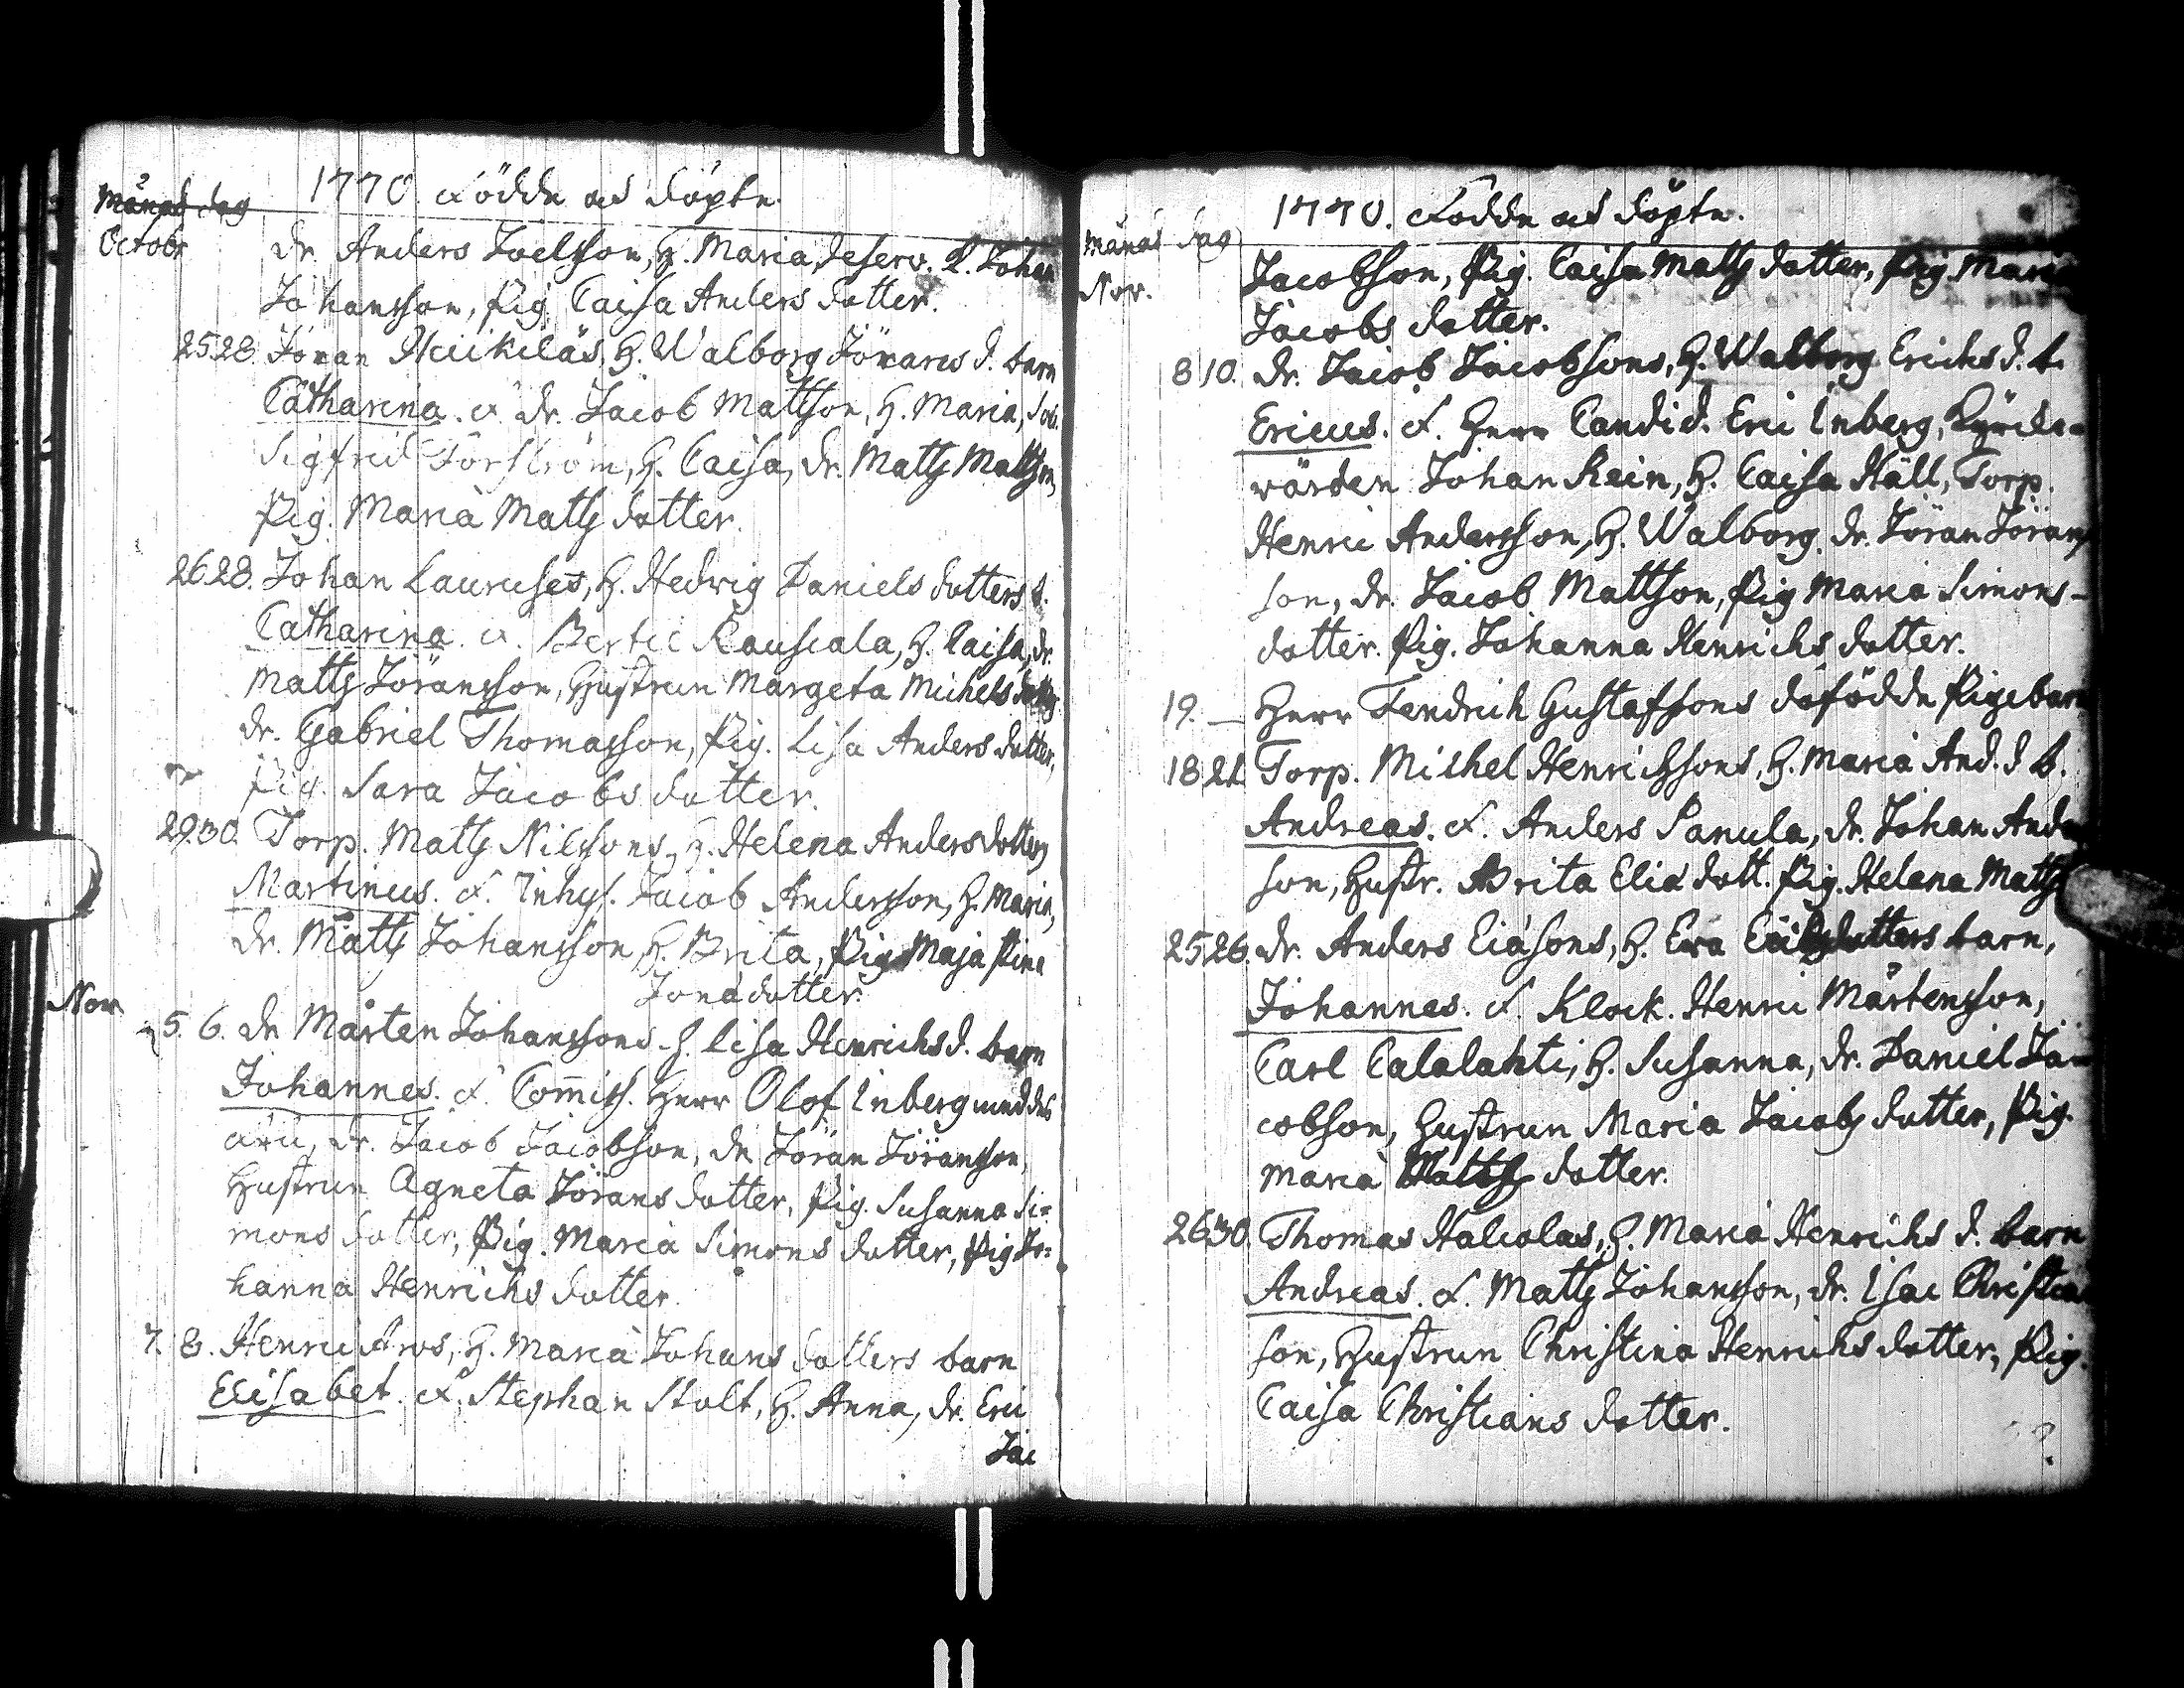 1770. Födde och döpte.
Månad dag
Octobr
dr. Anders Joelsson, H. Maria, deserv. L. Johan
Johansson, Pig. Caisa Anders dotter.
25. 28. Jöran Heikiläs, H. Walborg Jörans d. barn
Catharina. F. dr. Jacob Mattsson, H. Maria,
Sigfrid Forström, H. Caisa, dr. Matts Mattsson,
Pig. Maria Matts dotter.
26. 28. Johan Lauruses, H. Hedwig Daniels dotters b.
Catharina. F. Bertil Rauscala, H. Caisa, dr.
Matts Jöransson, Hustrun Margeta Michels dotter
dr. Gabriel Thomasson, Pig. Lisa Anders dotter,
Pig. Sara Jacobs dotter.
29. 30. Torp. Matts Nilssons, H. Helena Andersdotters
Martinus. F. Inhys. Jacob Andersson, H. Maria,
dr. Matts Johansson, H. Brita, Pig. Maja Stina
Jona dotter.
Nov.
5. 6. dr. Mårten Johanssons H. Lisa Henrichs d. barn
Johannes. F. Com̄iss. Herr Olof Enberg med des
dr. Jacob Jacobson, dr. Jöran Jöransson,
Hustrun Agneta Jörans dotter, Pig. Susanna Si=
mons dotter, Pig. Maria Simons dotter, Pig. Jo=
hanna Henrichs dotter.
7. 8. Henric Arvs, H. Maria Johans dotters barn
Elisabet. F. Stephan Stolt, H. Anna, dr. Eric
Jac
1770. Födde och döpte.
Månad dag
Nov.
Jacobson, Pig. Caisa Matts dotter, Pig. Maria
Jacobs dotter.
8 10. dr. Jacob Jacobsons, H. Walborg Erichs d. b.
Ericus. F. Herr Candid. Eric Enberg, Kyrcko-
värden Johan Rein, H. Caisa Häll, Torp.
Henric Andersson, H. Walborg. dr. Jöran Jörans
son, dr. Jacob Mattson, Pig Maria Simons-
dotter. Pig. Johanna Henrichs dotter.
19. — Herr Fendrich Gustafssons döfödde Pigebarn
18. 21. Torp. Michel Henrichssons, H. Maria And. d b.
Andreas. F. Anders Panula, dr. Johan Anders
son, Hustr. Brita Elia dott. Pig. Helena Matts
25. 26. dr. Anders Eliäsons, H. Eva dotters barn,
Johannes. F. Klock. Henric Mårtensson,
Carl Calalahti, H. Susanna, dr. Daniel Ja-
cobson, Hustrun Maria Jacobs dotter, Pig.
Maria Matts dotter.
26. 30. Thomas Halcolas, H. Maria Henrichs d. barn
Andreas. F. Matts Johansson, dr. Isac Christian
son, Hustrun Christina Henrichs dotter, Pig.
Caisa Christians dotter.